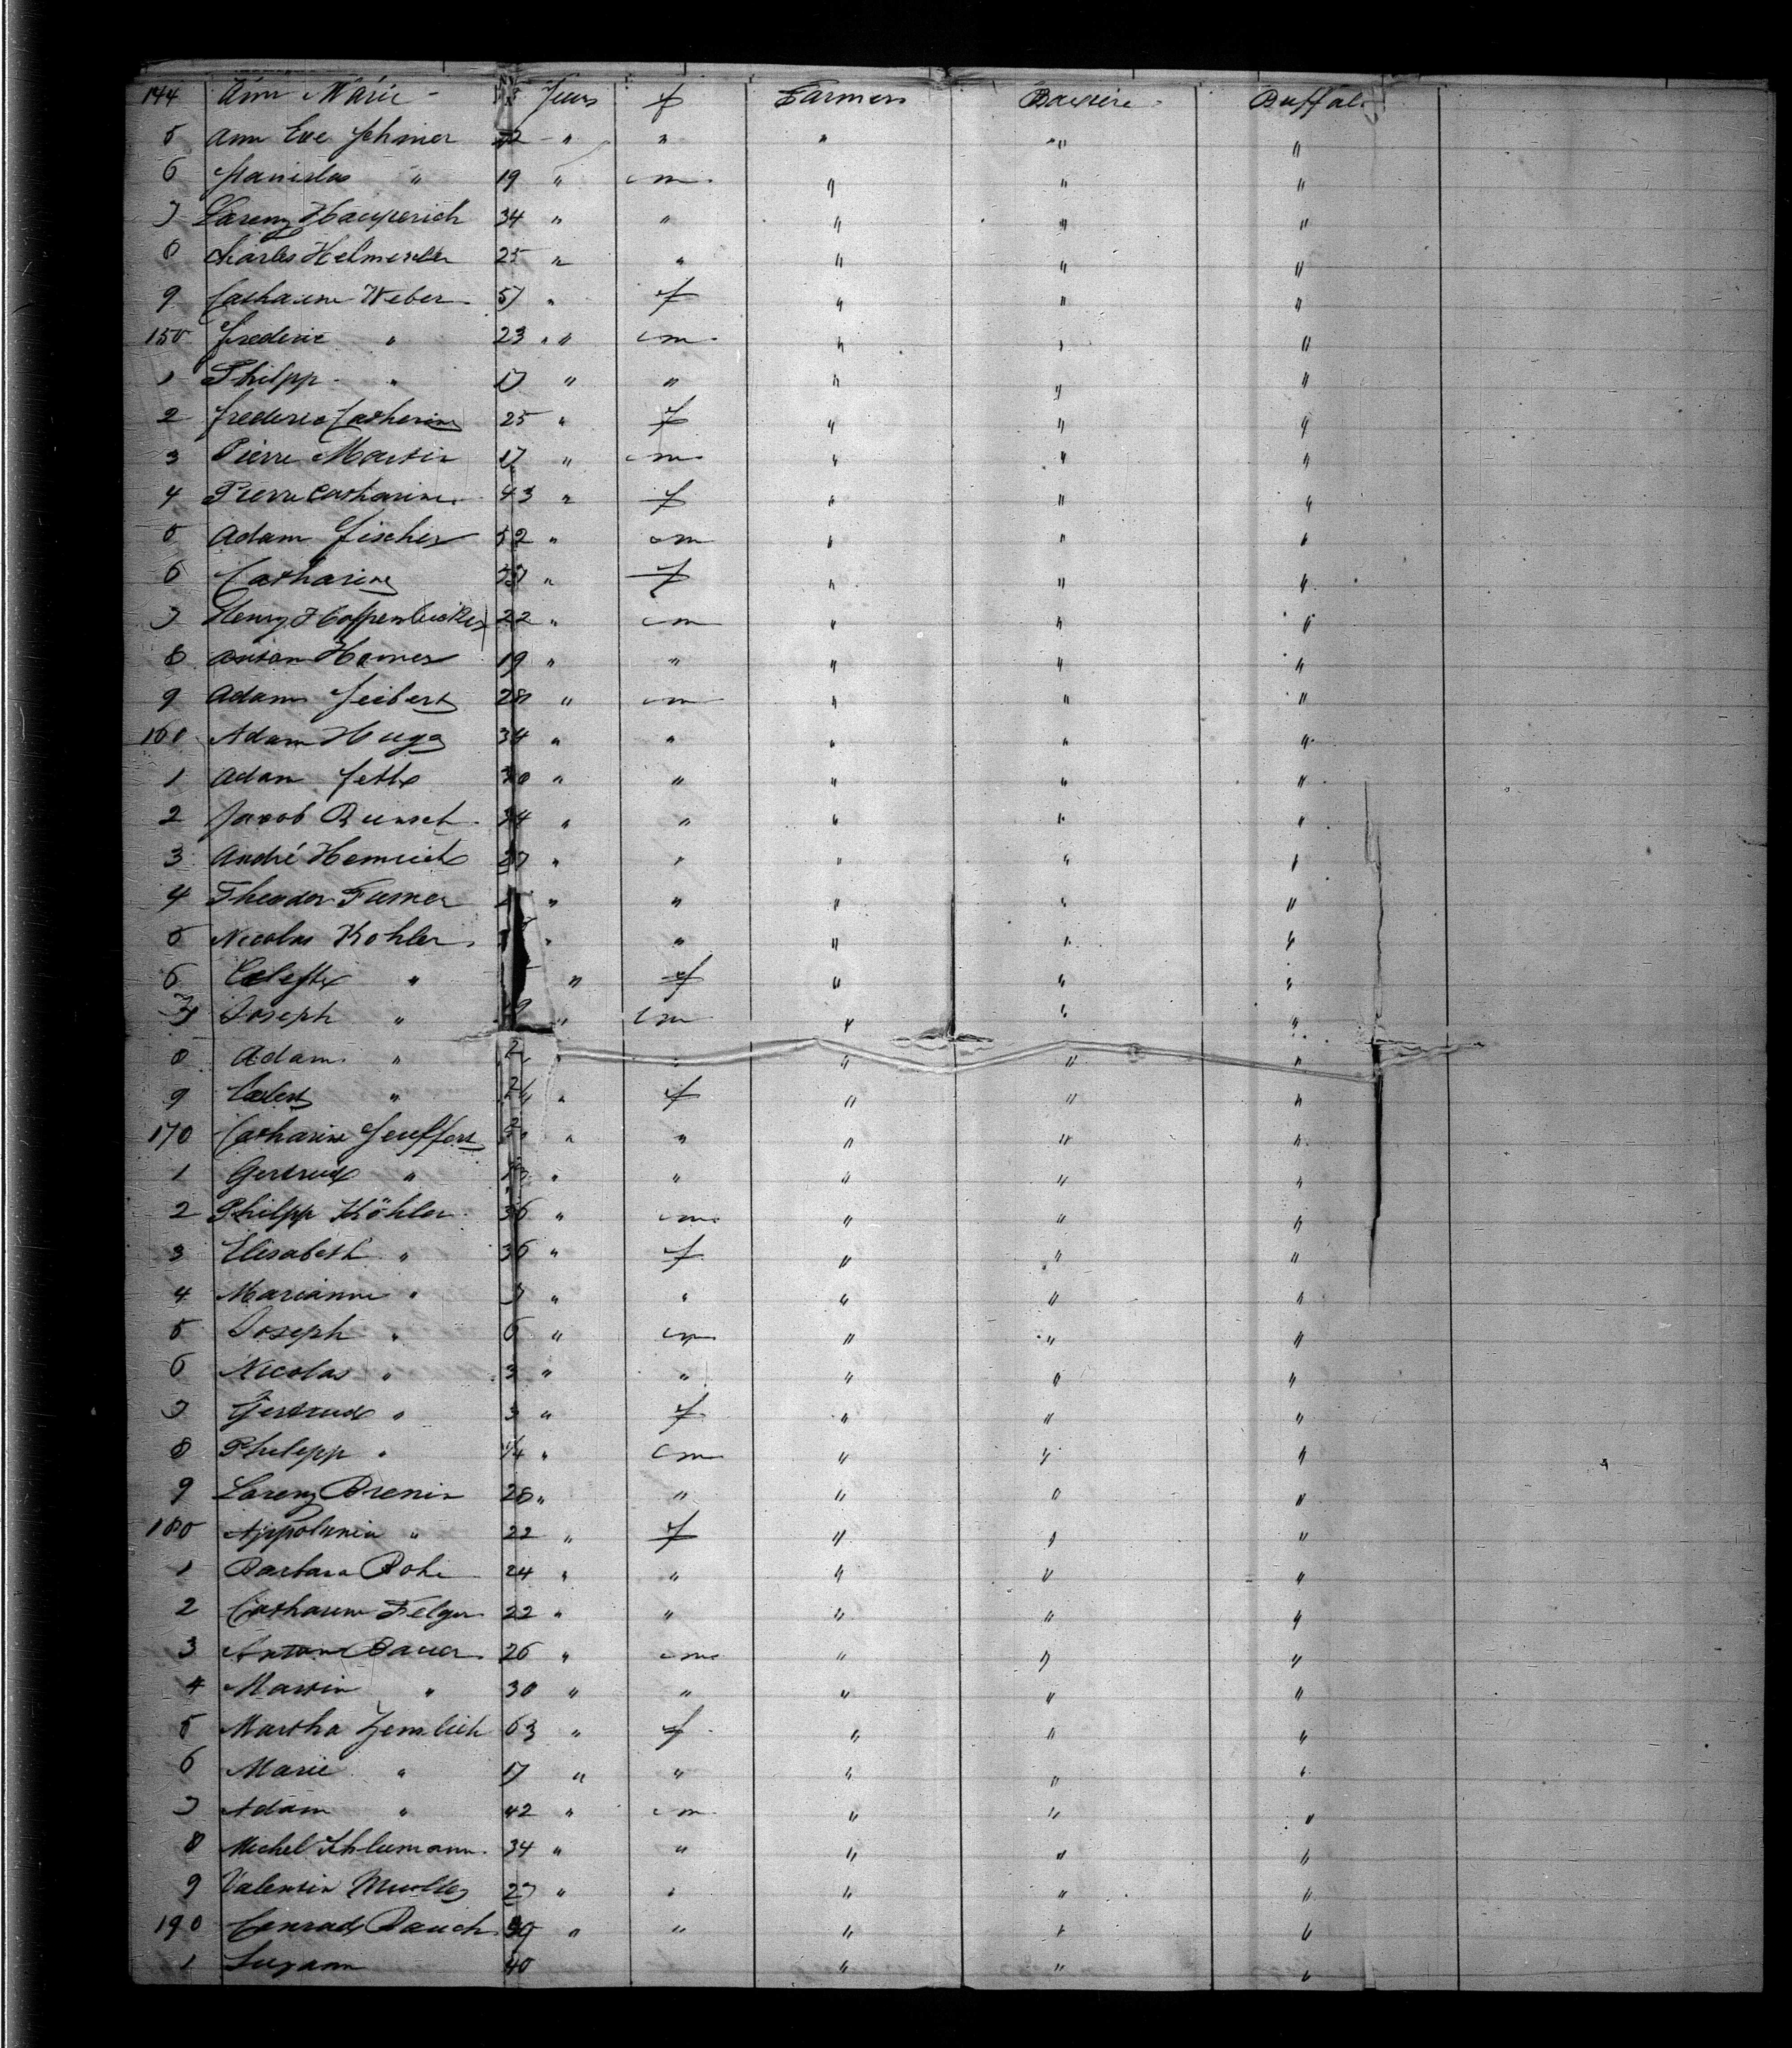 144 Ann Marie - Years f Farmers Bavière Buffalo
5 Ann Eve Schiner 52 - " " " " "
6 Stanislas " 19 " m " " "
7 Lorenz Hauperich 34 " " " " "
8 Charles Helmesder 25 " " " " "
9 Catharine Weber 57 " f " " "
150 Frederic " 23 " m " " "
1 Philpp " 17 " " " " "
2 Frederic Catherine 25 " f " " "
3 Pierre Martin 17 " m " " "
4 Pierre Catharine 43 " f " " "
5 Adam Fischer 52 " m " " "
6 Catharine " f " " "
7 Henry 22 " m " " "
8 Anton Hames 19 " " " " "
9 Adam Seibert 28 " m " " "
160 Adam Hugo 34 " " " " "
1 Adam 30 " " " " "
2 Jacob Bunsch 34 " " " " "
3 André Heinrich 27 " " " " "
4 Theodor Turner " " " " "
5 Nicolas Kohler " " " " "
6 Celeste " " f " " "
7 Joseph " " m " " "
8 Adam " " " " " "
9 " " f " " "
170 Catharine Seuffert " " " " "
1 Gertrud " 13 " " " " "
2 Philpp Köhler 36 " m " " "
3 Elisabeth " 36 " f " " "
4 Marianne " 7 " " " " "
5 Joseph " 6 " m " " "
6 Nicolas " 3 " " " " "
7 Gertrud " 3 " f " " "
8 Philipp " 1/4 " m " " "
9 Lorenz Brenin 28 " " " " "
180 Appolonia " 22 " f " " "
1 Barbara Bohr 24 " " " " "
2 Catharine Felger 22 " " " " "
3 Anton Bauer 26 " m " " "
4 Martin " 30 " " " " "
5 Martha Zemlich 63 " f " " "
6 Marie " 17 " " " " "
7 Adam " 42 " m " " "
8 Michel Thlumann 34 " " " " "
9 Valentin 27 " " " " "
190 Conrad Bauch 39 " " " " "
1 Suzann 40 " " "